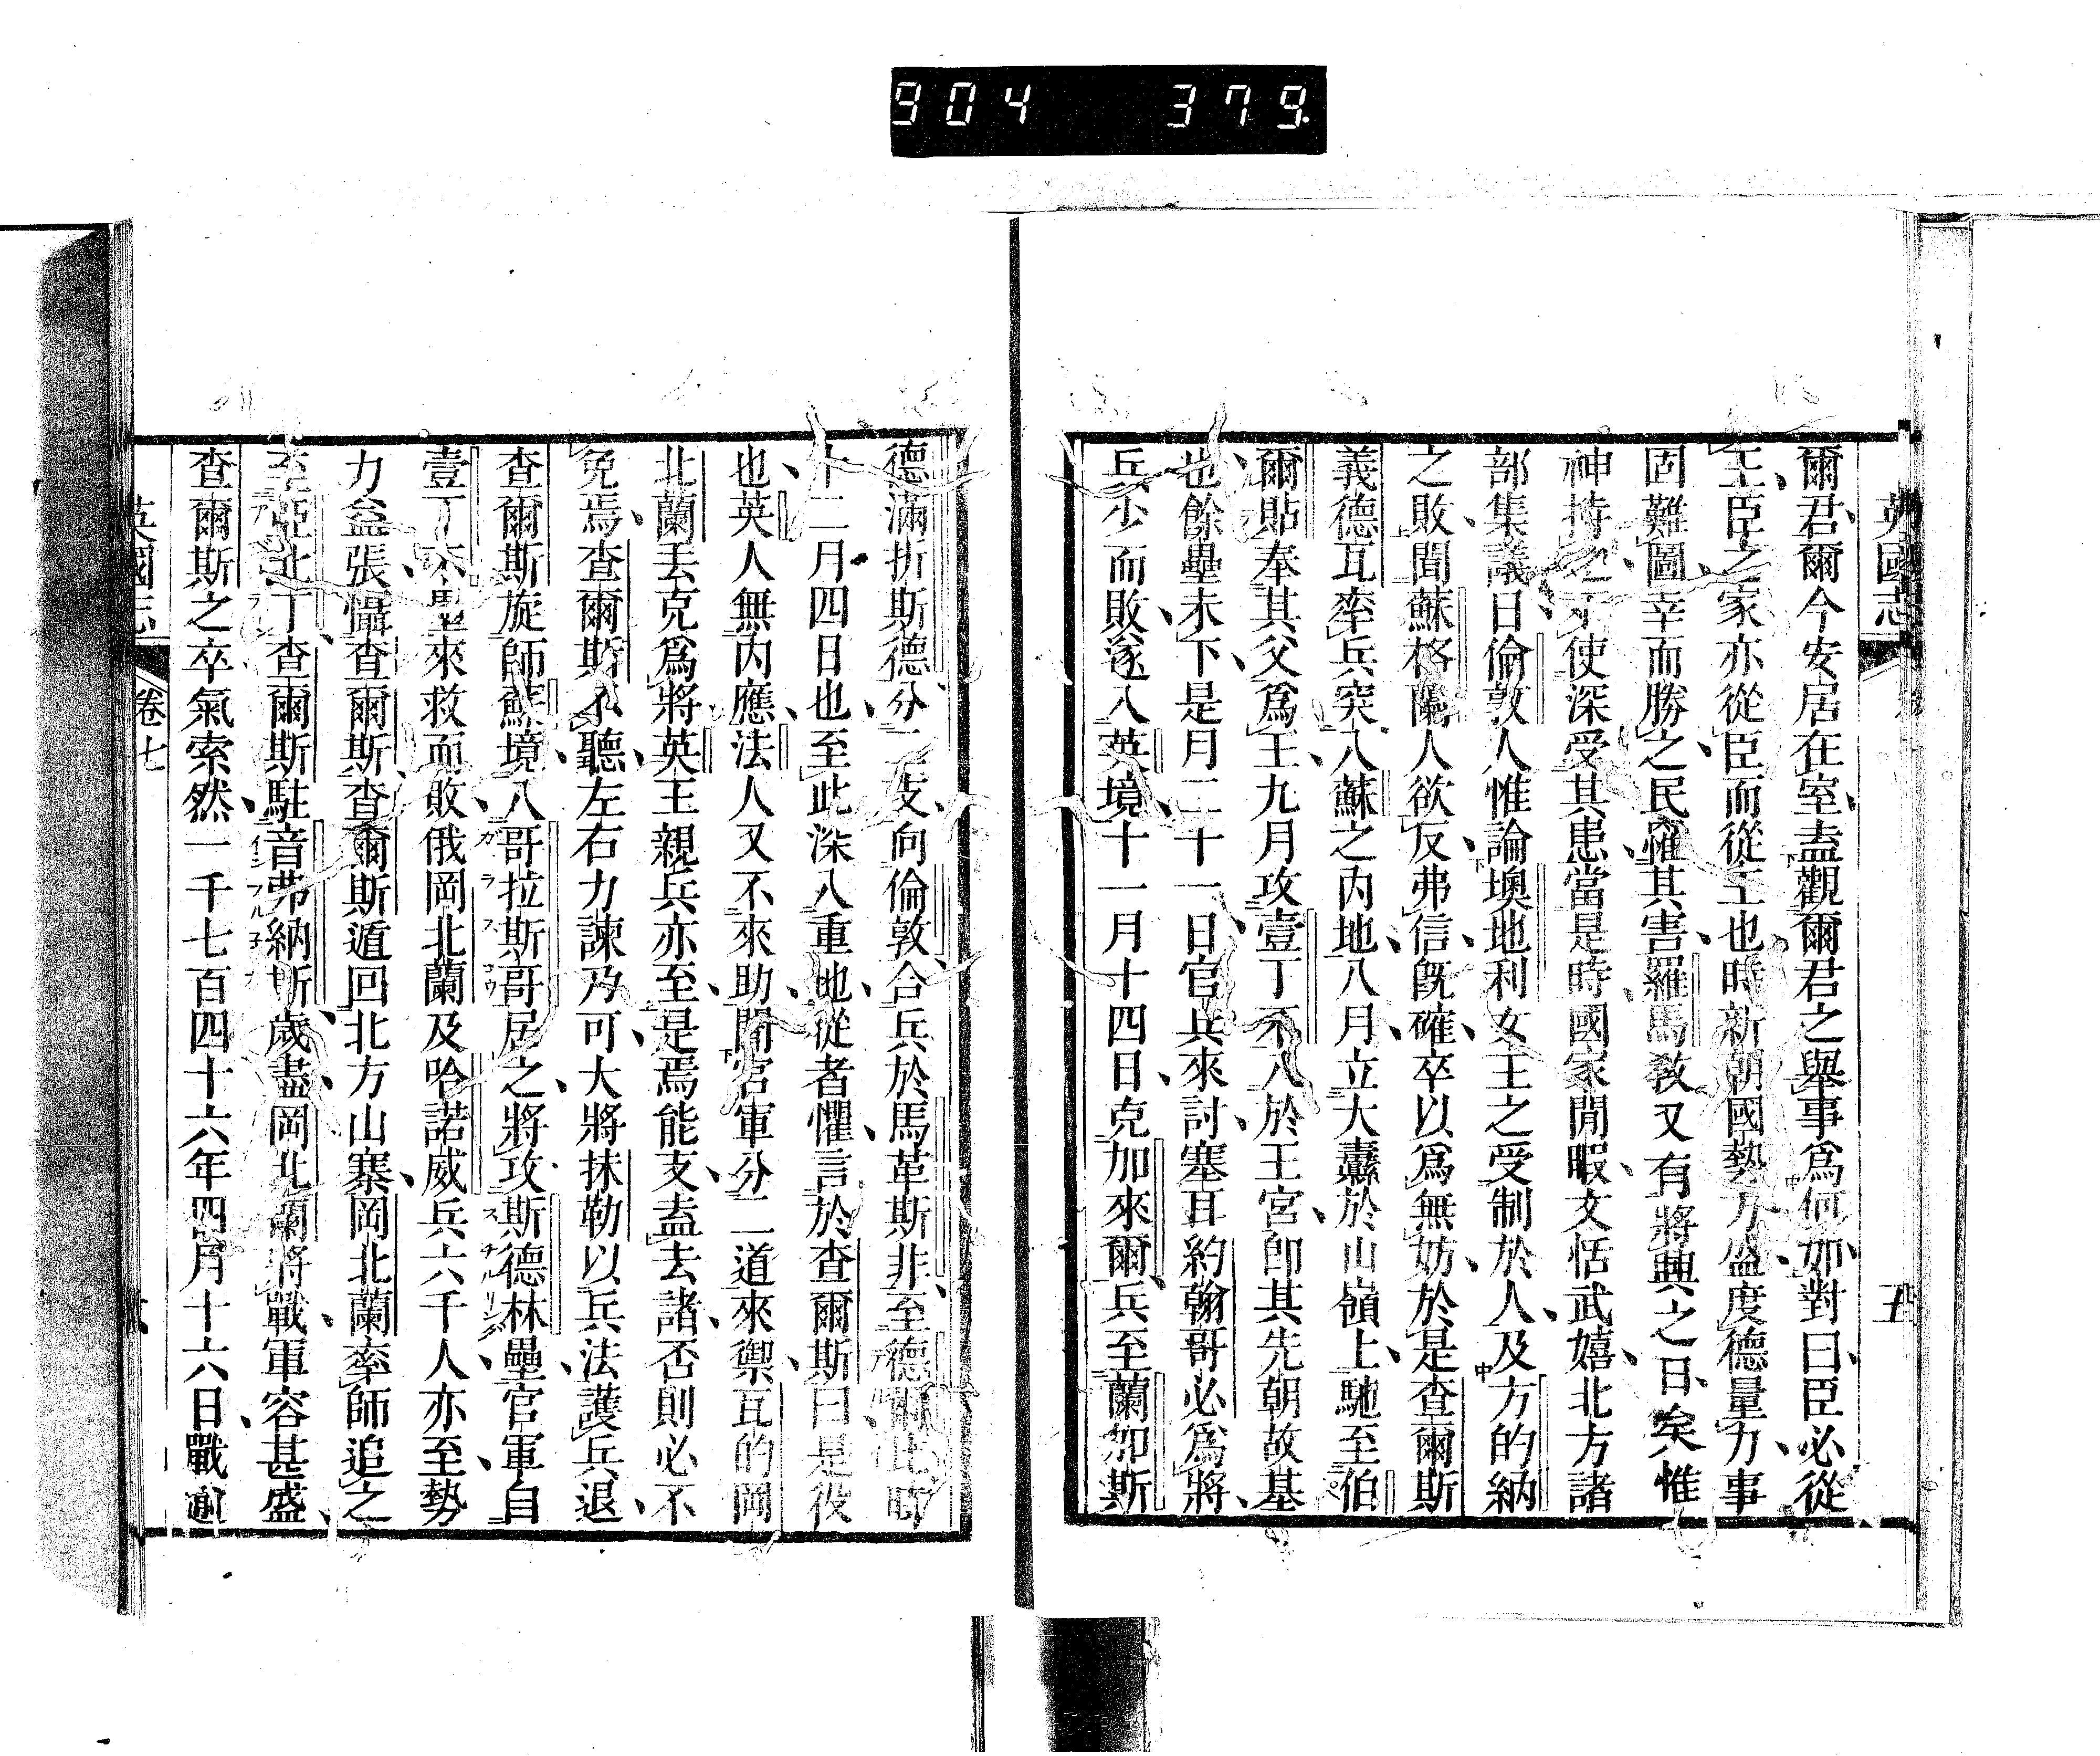 904 379.
英國志
五
爾君爾今安居在室盍觀爾君之舉事爲何如對曰臣必從
王臣之家亦從臣而從王也時新朝國勢方盛度德量力事
固難圖幸而勝之民罹其害羅馬敎又有將興之日矣惟
神持之不使深受其患當是時國家閒暇文恬武嬉北方諸
部集議曰倫敦人惟論墺地利女王之受制於人及方的納
之敗聞蘇格蘭人欲反弗信旣確卒以爲無妨於是查爾斯
義德瓦率兵突入蘇之內地八月立大纛於山嶺上馳至伯
爾貼奉其父爲王九月攻壹丁不入於王宮卽其先朝故基
也餘壘未下是月二十一日官兵來討塞耳約翰哥必爲將
兵少而敗遂入英境十一月十四日克加來爾兵至蘭加斯
德滿折斯德分二支向倫敦合兵於馬革斯非至德爾比時
十二月四日也至此深入重地從者懼言於查爾斯曰是役
也英人無內應法人又不來助聞官軍分二道來禦瓦的岡
北蘭丟克爲將英王親兵亦至是焉能支盍去諸否則必不
免焉查爾斯不聽左右力諫乃可大將抹勒以兵法護兵退
查爾斯旋師蘇境入哥拉斯哥居之將攻斯德林壘官軍自
壹丁不堡來救而敗俄岡北蘭及哈諾威兵六千人亦至勢
力盆張懾查爾斯查爾斯遁回北方山寨岡北蘭率師追之
至亞北丁查爾斯駐音弗納斯歲盡岡北蘭將戰軍容甚盛
查爾斯之卒氣索然一千七百四十六年四月十六日戰逾
英國志
卷七